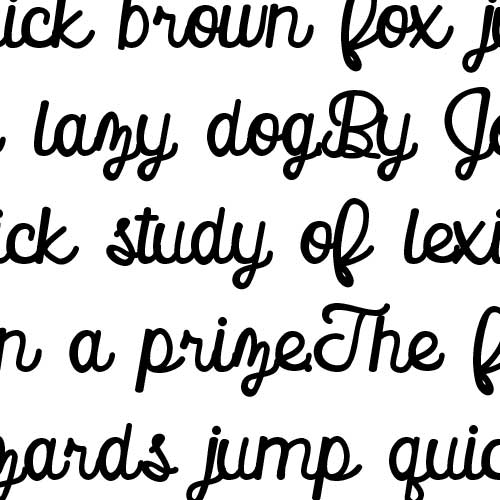 ick brown fox j
lazy dog.By Jo
ick study of lexi
n a prize.The f
zards jump quic